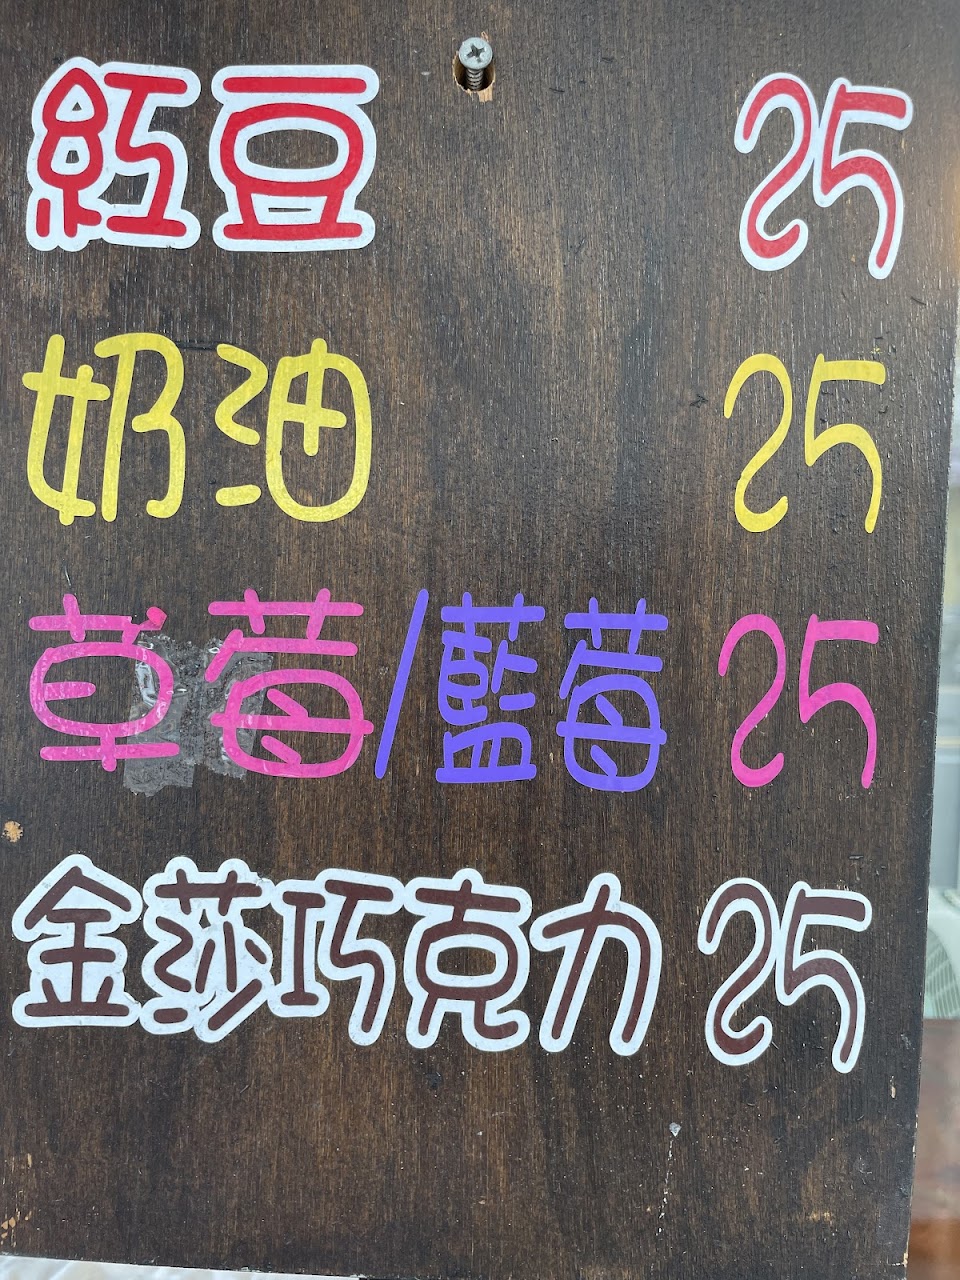 紅豆 25
奶油 25
草莓/藍莓 25
金莎巧克力 25